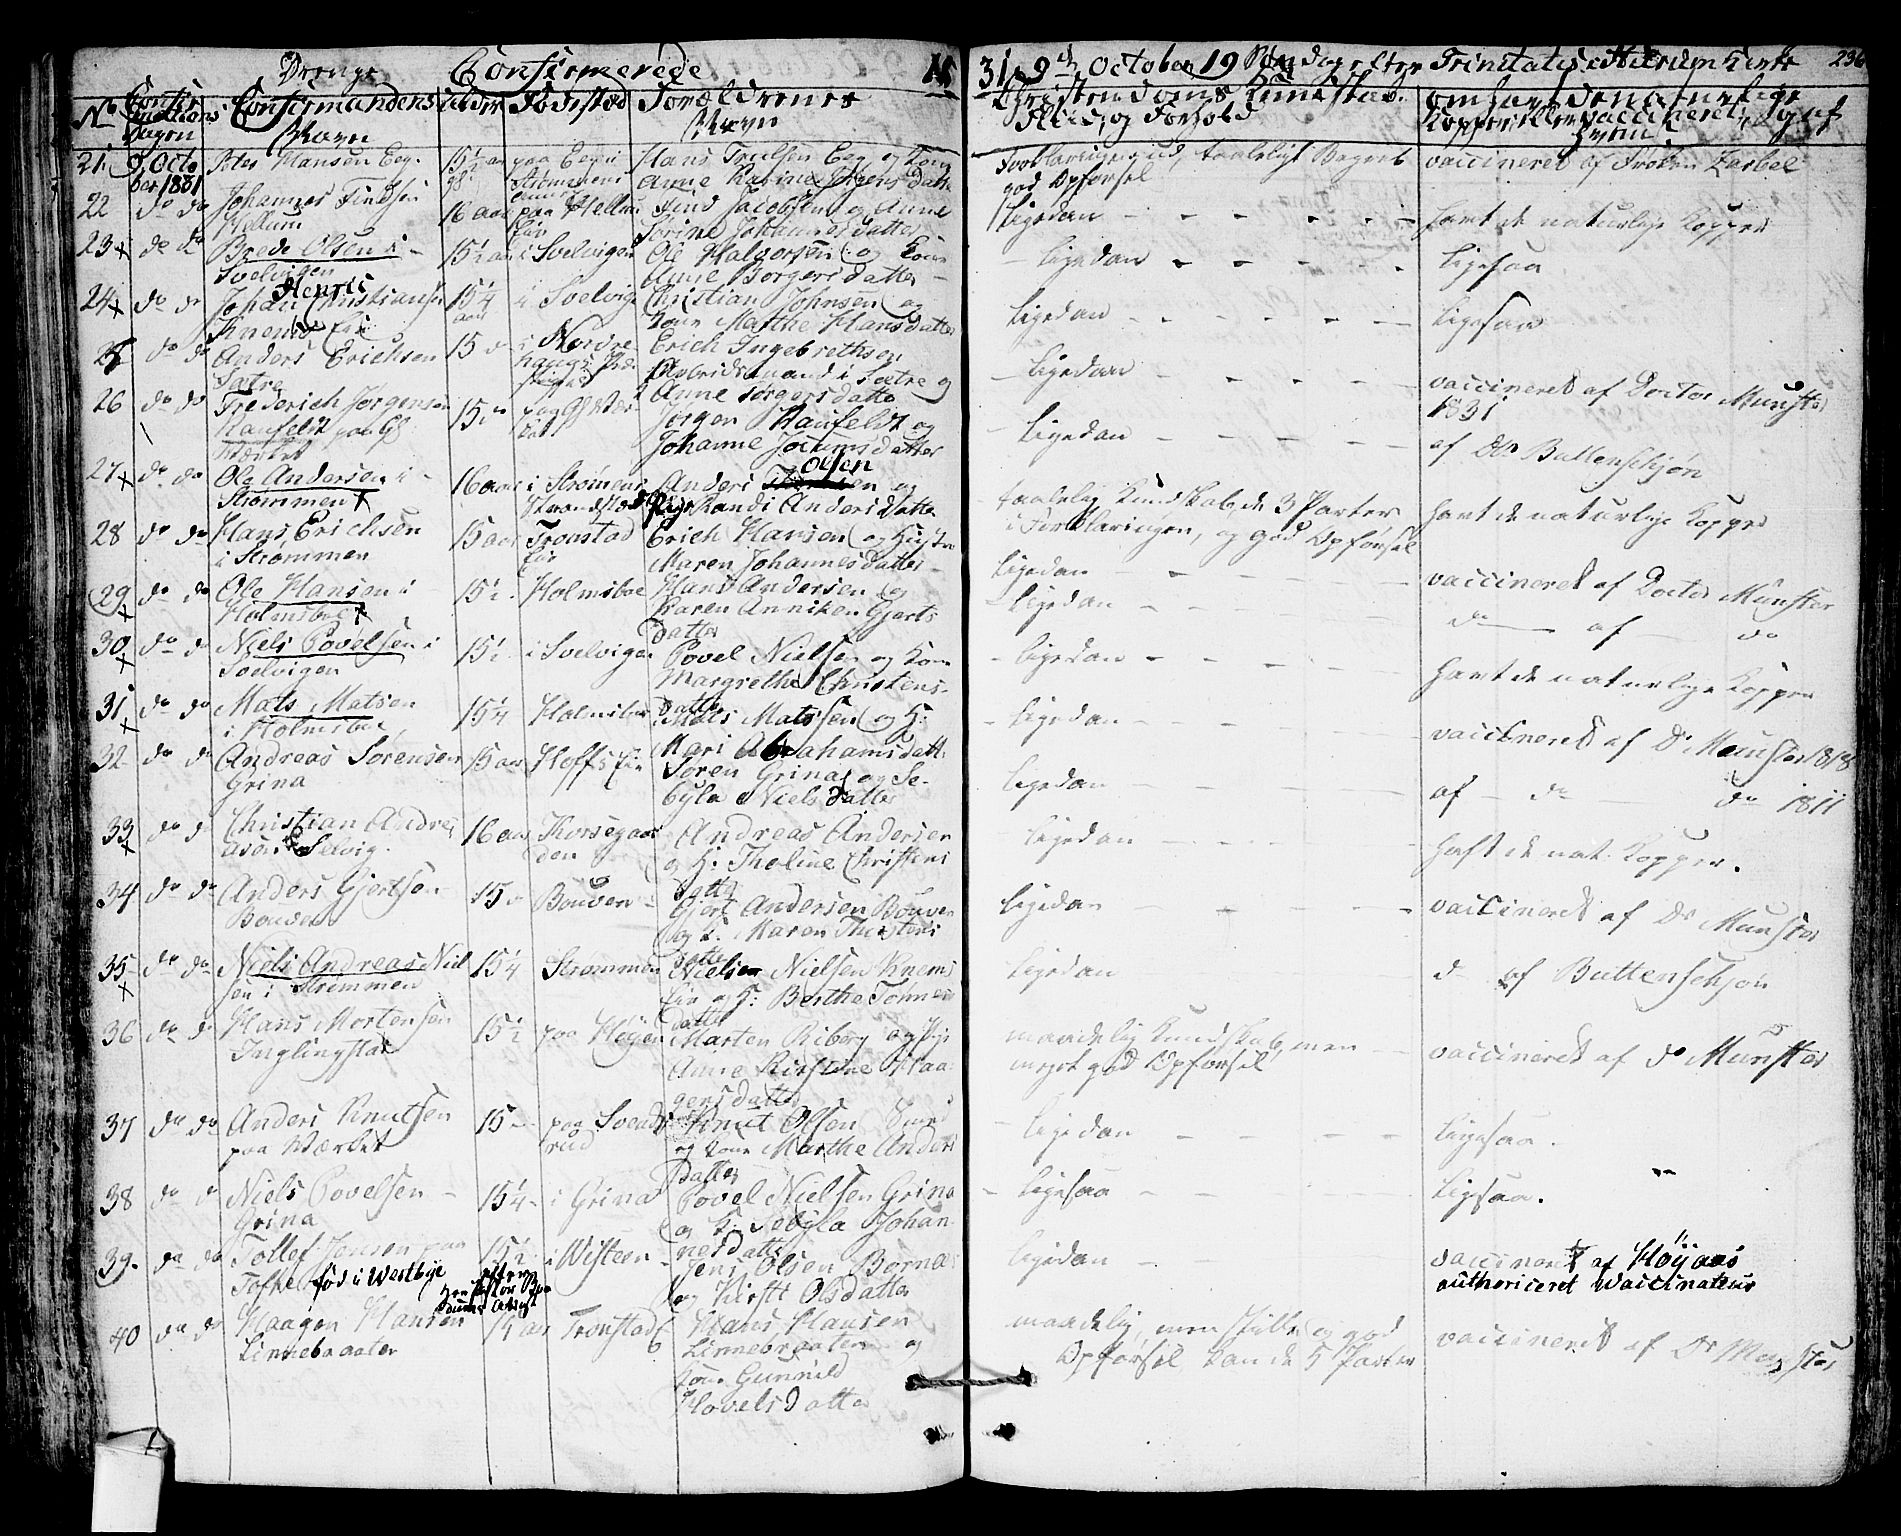 Drenge Confirmerede 18
31, 9de October 19 Søndag efter Trinitatis i Hurum Kirke 236
No Confirmations Dagen Confirmandens Navn Alder Fødested Forældrenes Navn
Christendoms Kundskab. Flid, og Forhold
om havt de naturlige Kopper eller vaccineret, og af hvem
21. 9 October 1831 Peter Hansen Eeg. 15½ aar paa Eeg i Strømmens Hans Truelsen Eeg og Kone
Anne Karine Jørgensdatter
Forklaringen gud, taaleligt Begreb
god Opførsel
vaccineret af Frøken Zarbel
22 do do Johannes Findsen
Hellum
16 aar paa Hellum
Eie
Find Jacobsen og Anne
Sørine Johannesdatter
Ligedan
havt de naturlige Kopper
23 x do do Brede Olsen i
Svelvigen
15½ aar i Svelvigen Ole Halvorsen og Kone
Anne Borgersdatter
Ligedan
Ligesaa
24 x do do Johan Henric Christiansen
Knems Eie
15¼ aar i Svelvig Christian Johnsen og
Kone Marthe Hansdatter
Ligedan
Ligesaa
25 do do Anders Erichsen
Sætre
15 i Nordre
Erich Ingebrethsen
Arbeidsmand i Sætre og
Anne Jørgensdatter
Ligedan
vaccineret af Doctor Munster
1831
26 do do Frederich Jørgensen
Haufeldt paa
Værket
15 do Jørgen Haufeldt og
Johanne Jocumsdatter
Ligedan
af Dr Buttenschjøn
27 x do do Ole Andersen i
Strømmen x
16 aar i Strømmens
Strandsted
Anders Olsen og
Pige Randi Andersdatter
taalelig Kundskab, de 3 Parter
i Forklaringen, og god Opførsel
havt de naturlige Kopper
28 do do Hans Erichsen
i Strømmen
15 aar Tronstad
Eie
Erich Hansen og Hustru
Maren Johannesdatter
Ligedan
vaccineret af Doctor Münster
29 x do do Ole Hansen i
Holmsboe x
15½ Holmsboe Hans Andersen og
Karen Anniken Gjerts
datter
Ligedan
do af do
30 x do do Niels Povelsen i
Svelvigen
15½ i Svelvigen Povel Nielsen og Kone
Margrethe Christens-
datter
Ligedan
havt de naturlige Kopper
31 x do do Mats Matsen
i Holmsboe
15¼ Holmsboe Mats Matssen og H:
Mari Abrahamsdatt.
Ligedan
vaccineret af Dr Munster 1818
32 do do Andreas Sørensen
Grina
15 aar Hoffs Eie Søren Grina og Se-
byla Nielsdatter
Ligedan
af do do 1811
33 x do do Christian Andre-
asen Selvig.
16 aar Korsegaar
den
Andreas Andersen
og H. Tholine Christens
datter
Ligedan
haft de nat. Kopper.
34 do do Anders Gjertsen
Bouven
15 Bouven Gjert Andersen Bouven
og K. Maren Thorstens
datter
Ligedan
vaccineret af Dr Munster
35 x do do Niels Andreas Niel
sen i Strømmen
15¼ Strømmen Nielsen Nielsen Knems
Eie og H: Berthe Tønnes
datter
Ligedan
do af Buttenschjøn
36 do do Hans Mortensen
Inglingstad
15½ paa Høyen Morten Riberg og Pige
Anne Kirstine Haa-
gensdatter
maadelig Kundskab, men
meget god Opførsel
vaccineret af Dr Münster
37 do do Anders Knutsen
paa Værket
15 paa Svends
rud
Knut Olsen
og Kone Marthe Anders
datter
Ligedan
Ligesaa.
38 do do Niels Povelsen
Grina
15¼ i Grina Povel Nielsen Grina
og K: Sebyla Johan-
nesdatter
Ligesaa
Ligesaa.
39. do do Tollef Jensen paa
Tofte født i Westbye
15½ i Westeen Jens Olsen Bornaas
og Kirsti Olsdatter
Ligedan
vaccineret af Höyaas
authoriceret Vaccinateur
40 do do Haagen Hansen
Linnebraaten
efter
aar Tronstad Hans Hansen
Linnebraaten og
Kone Gunnild
Hovelsdatter
maadelig, men stille og god
Opførsel kan de 5 Parter
vaccineret af Dr Munster